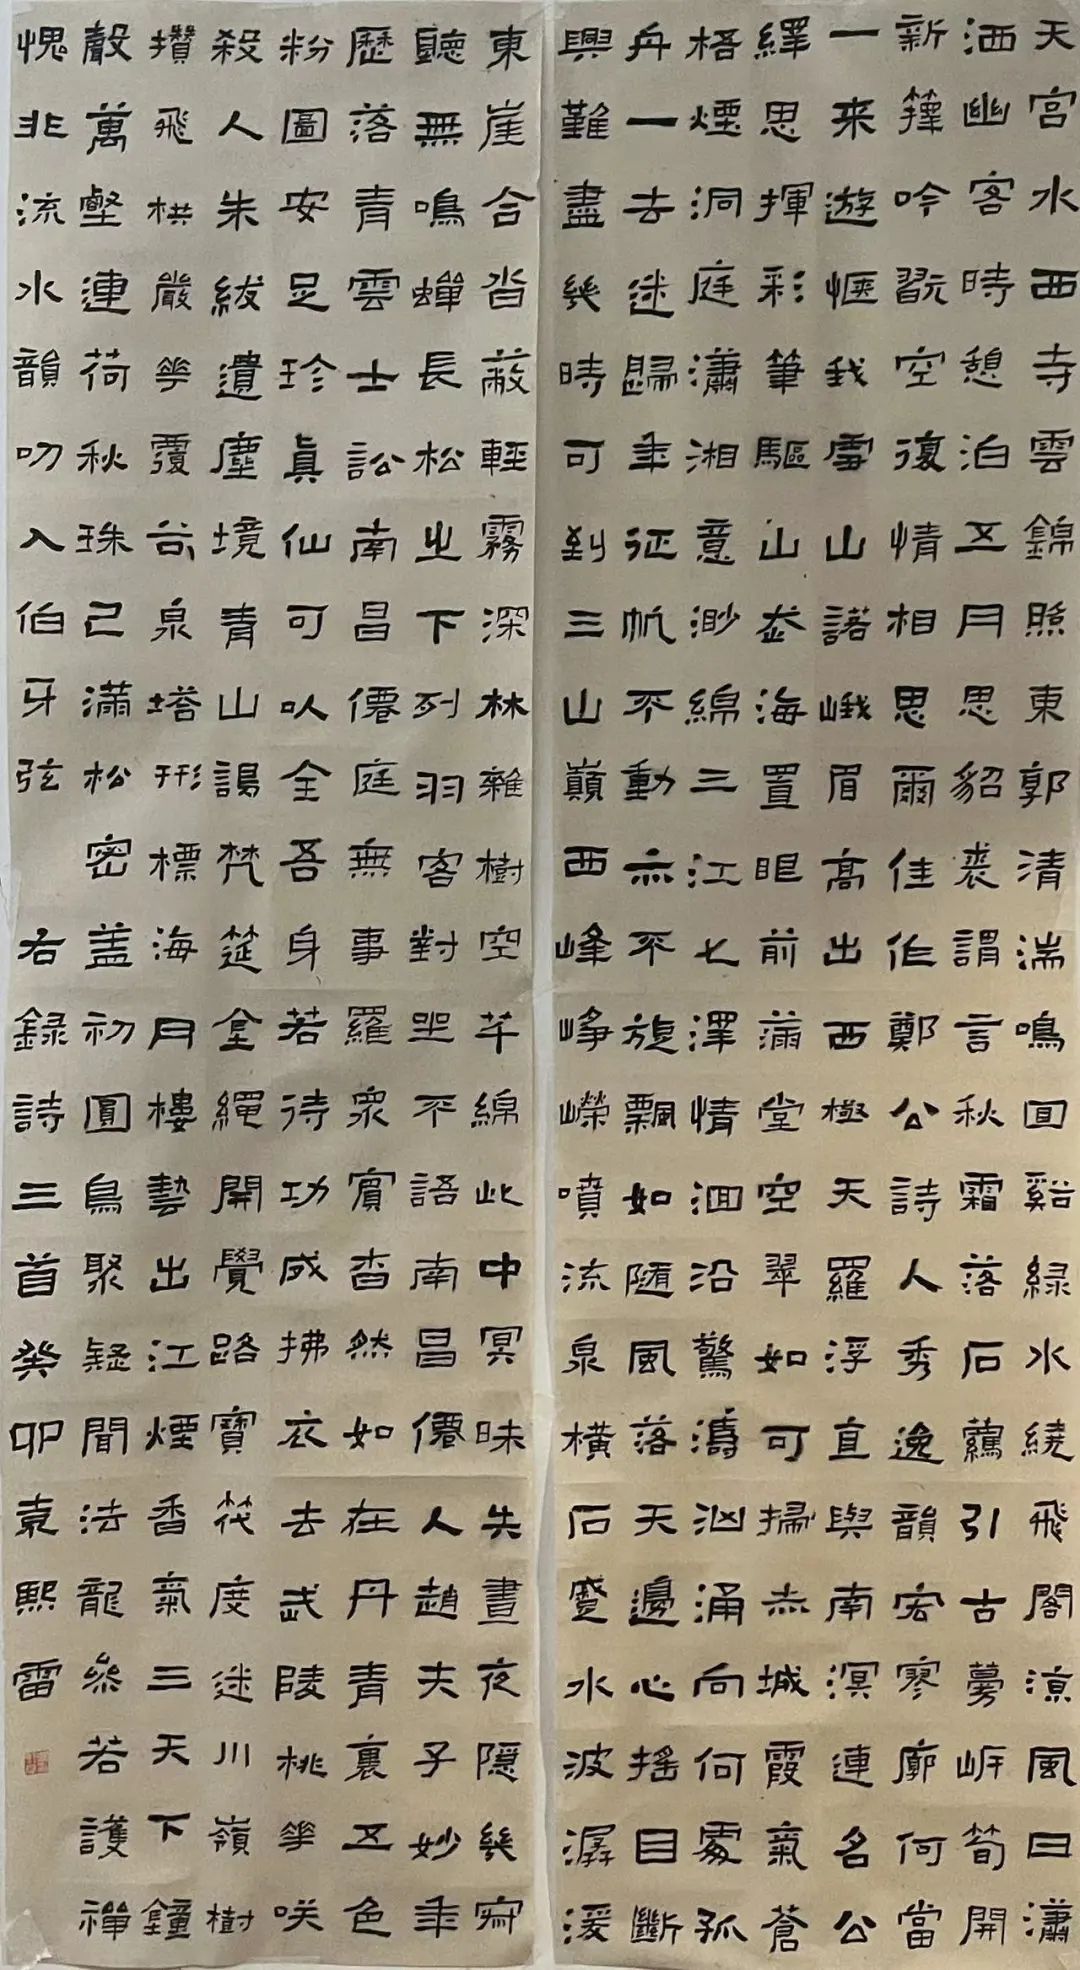 天宮水西寺雲錦照東郭清湍鳴回谿綠水繞飛閣涼風日瀟
洒幽客時憩泊五月思貂裘謂言秋霜落石蘿引古蔓岍筍開
新籜吟翫空復情相思爾佳作鄭公詩人秀逸韻宏寥廓何當
一来遊愜我雪山諾峨眉高出西極天羅浮直與南溟連名公
繹思揮彩筆驅山走海置眼前滿堂空翠如可掃赤城霞氣蒼
梧煙洞庭瀟湘意渺綿三江七澤情洄沿驚濤洶涌向何處孤
舟一去迷歸年征帆不動亦不旋飄如隨風落天邊心搖目斷
興難盡幾時可到三山巔西峰崢嶸噴流泉橫石蹙水波潺湲
東崖合沓蔽輕霧深林雜樹空芊綿此中冥昧失晝夜隱幾寂
聽無鳴蟬長松之下列羽客對坐不語南昌僊人趙夫子妙年
歷落青雲士訟南昌僊庭無事羅衆賓杳然如在丹青裏五色
粉圖安足珍真仙可以全吾身若待功成拂衣去武陵桃花咲
殺人朱紱遺塵境青山謁梵筵金繩開覺路寶筏度迷川嶺樹
攢飛栱巖花覆谷泉塔形標海月樓藝出江煙香氣三天下鐘
聲萬壑連荷秋珠已滿松密盖初圓鳥聚疑聞法龍參若護禪
愧非流水韻叨入伯牙弦 右録詩三首癸卯袁熙雷